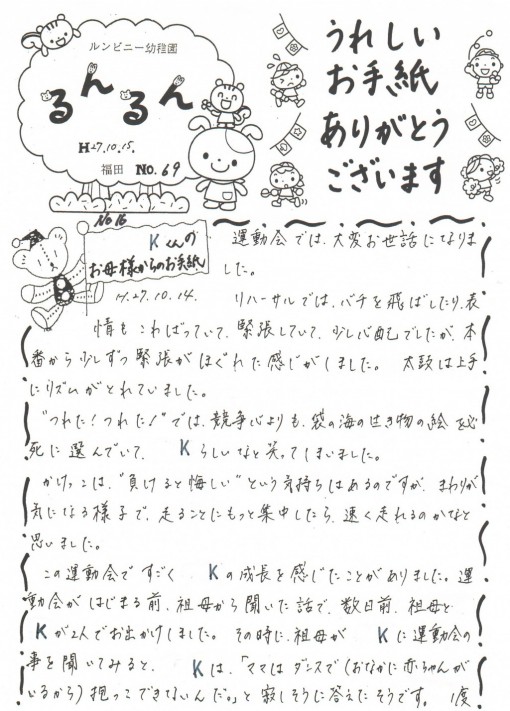 ルンビニー幼稚園
るんるん
H27.10.15.
福田 No.69
うれしい
お手紙
ありがとう
ございます
No16
Kくんの
お母様からのお手紙
H.27.10.14.
運動会では、大変お世話になりま
した。
リハーサルでは、バチを飛ばしたり、表
情もこわばっていて、緊張していて、少し心配でしたが、本
番から少しずつ緊張がほぐれた感じがしました。 太鼓は上手
にリズムがとれていました。
"つれた!つれた!"では、競争心よりも、袋の海の生き物の絵を必
死に選んでいて、Kらしいなと笑ってしまいました。
かけっこは、"負けると悔しい"という気持ちはあるのですが、まわりが
気になる様子で、走ることにもっと集中したら、速く走れるのかなと
思いました。
この運動会ですごくKの成長を感じたことがありました。運
動会がはじまる前、祖母から聞いた話で、数日前、祖母と
Kが2人でお出かけしました。その時に、祖母がKに運動会の
事を聞いてみると、Kは、「ママはダンスで(おなかに赤ちゃんが
いるから)抱っこできないんだ。」と寂しそうに答えたそうです。 1度